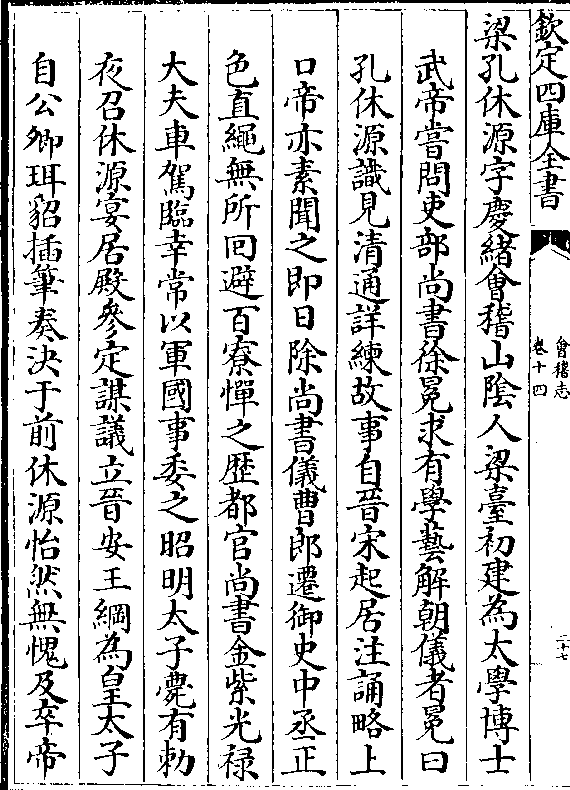 欽定四庫全書
會稽志
卷十四
二十七
梁孔休源字慶緒會稽山隂人梁臺初建為太學博士
武帝嘗問吏部尚書徐勉求有學藝解朝儀者勉曰
孔休源識見清通詳練故事自晉宋起居注誦略上
口帝亦素聞之即日除尚書儀曹郎遷御史中丞正
色直繩無所回避百寮憚之歴都官尚書金紫光禄
大夫車駕臨幸常以軍國事委之昭明太子薨有勅
夜召休源宴居殿參定謀議立晉安王綱為皇太子
自公卿珥貂插筆奏決于前休源怡然無愧及卒帝